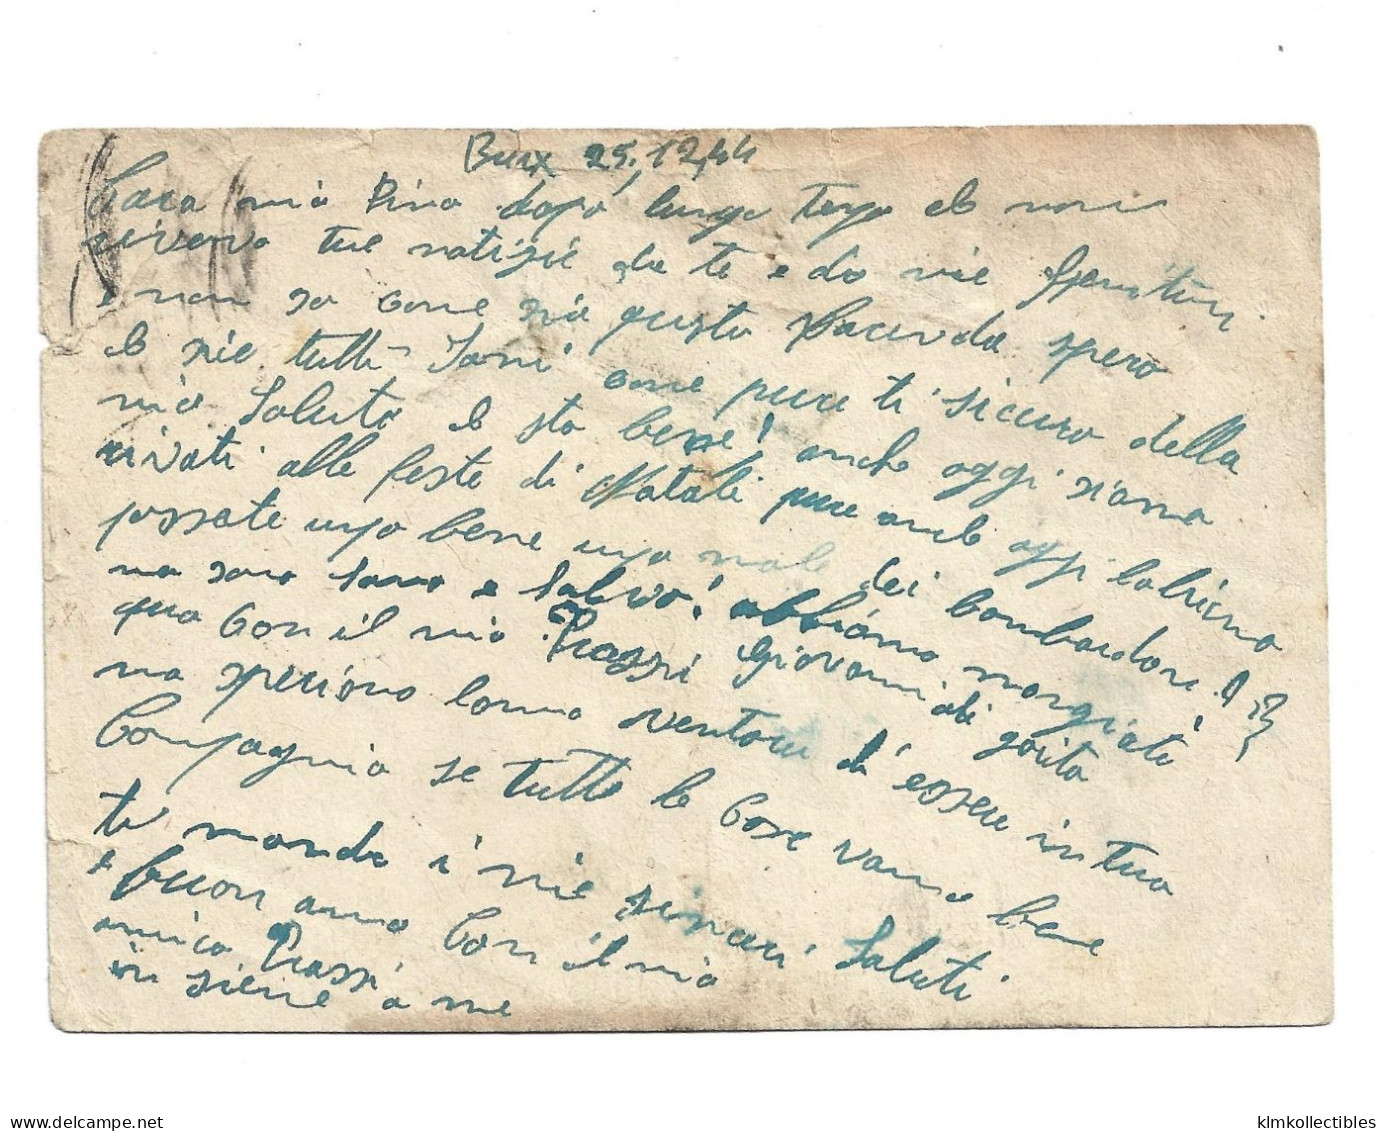 Brux 25.12.44
Cara mia Pina dopo lungo tempo che non
ricevevo tue notizie da te e da mie genitori
e non so come sia questa facenda spero
che sie tutti sani come pure ti sicuro della
mia saluta che sto bene! anche oggi siamo
rivati alle feste di Natale pure anche oggi
possate uno bene uno male dei bombardore
ma sono sano e salvo! abbiamo mangiato
qua con il mio Piassi Giovanni di goito
ma speriono la ventora di essere in tua
Compagnia se tutte le cose vanno bene
te mando i mie sinceri Saluti
e buon anno con il mio
amico Piassi
in sieme a me
klmkollectibles